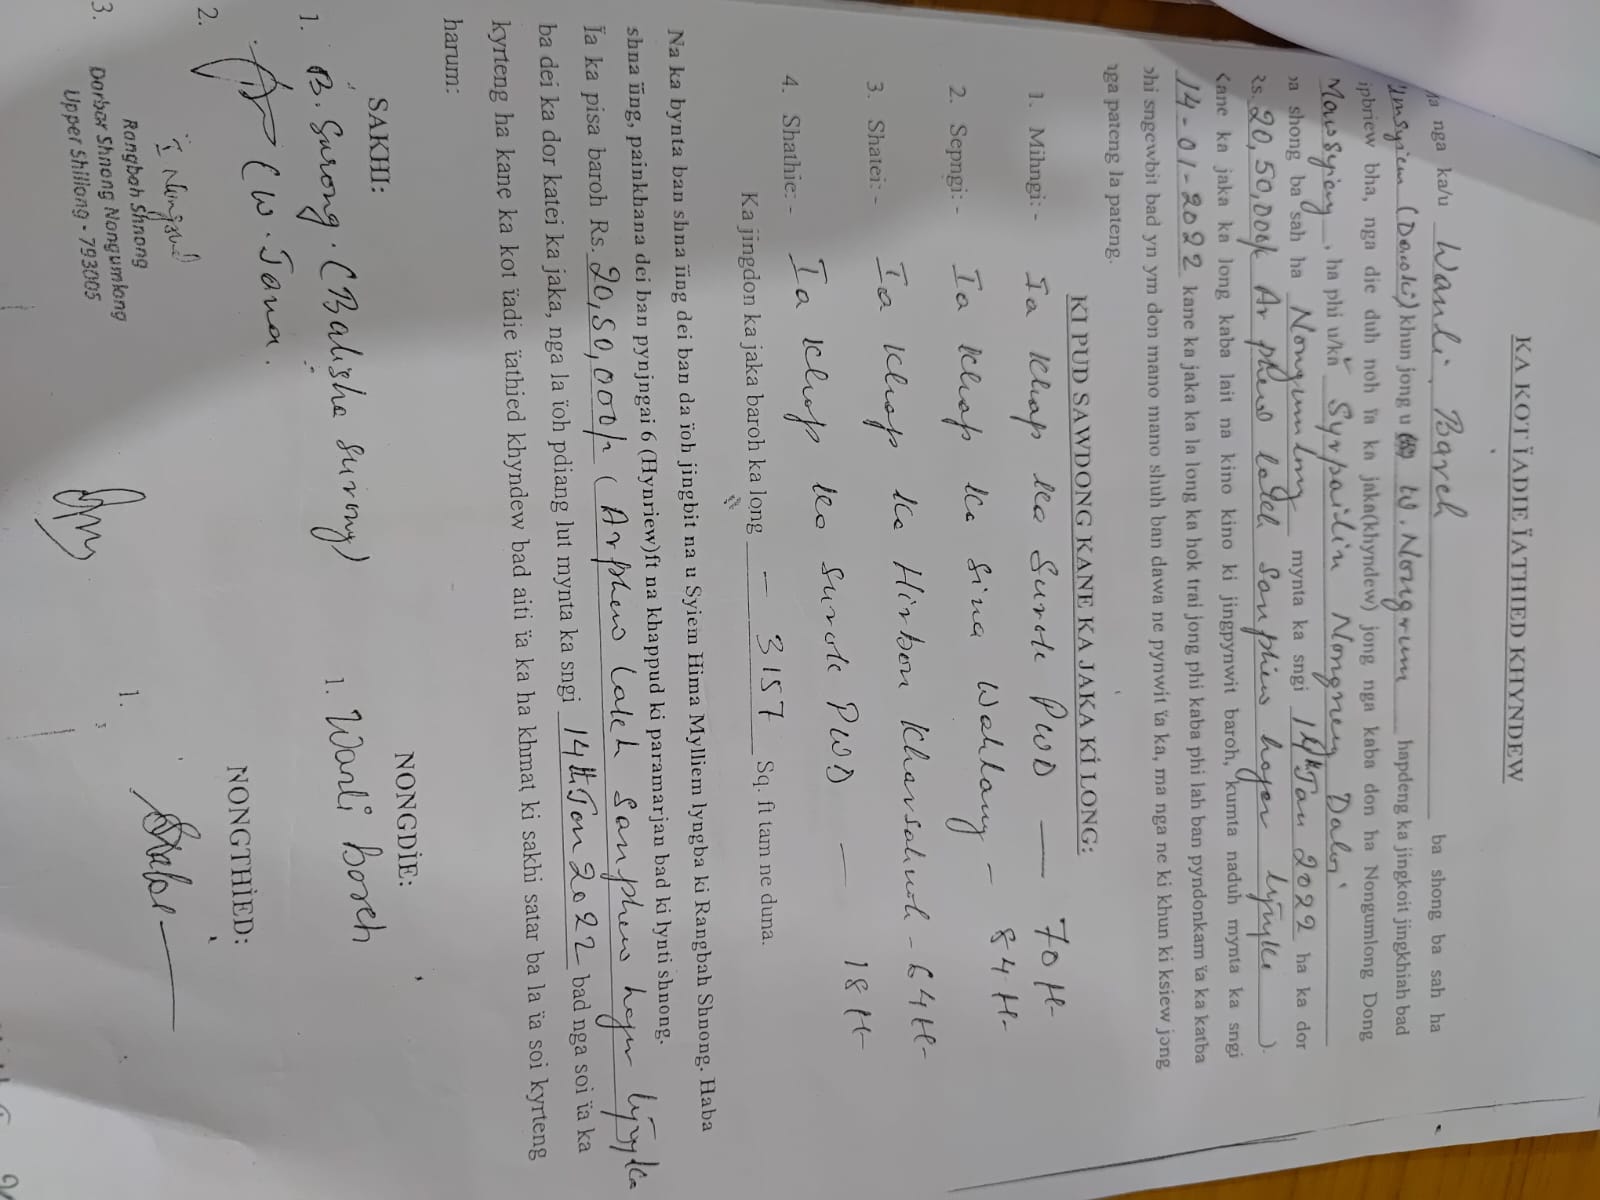 KA KOT ÏADIE ÏATHIED KHYNDEW
Ma nga ka/u Wanli Bareh ba shong ba sah ha
Umsyiem (Dawki) khun jong u W. Nongrum hapdeng ka jingkoit jingkhiah bad
ipbriew bha, nga die duh noh ïa ka jaka(khyndew) jong nga kaba don ha Nongumlong Dong
Mawsyieng, ha phi u/ka Syrpailin Nongneng Daloi
ba shong ba sah ha Nongumlong mynta ka sngi 14th Jan 2022 ha ka dor
Rs. 20,50,000/- Ar phew lakh sanphew hajar tyngka ).
Kane ka jaka ka long kaba lait na kino kino ki jingpynwit baroh, kumta naduh mynta ka sngi
14-01-2022 kane ka jaka ka la long ka hok trai jong phi kaba phi lah ban pyndonkam ïa ka katba
phi sngewbit bad yn ym don mano mano shuh ban dawa ne pynwit ïa ka, ma nga ne ki khun ki ksiew jong
nga pateng la pateng.
KI PUD SAWDONG KANE KA JAKA KI LONG:
1. Mihngi:- Ia khap ka Surok PWD — 70 ft
2. Sepngi:- Ia khap ka sina Wahlang - 84 ft-
3. Shatei:- Ia khap ka Hirbon Kharsahnoh - 64 ft-
4. Shathie:- Ia khap ka surok PWD — 18 ft-
Ka jingdon ka jaka baroh ka long — 3157 Sq. ft tam ne duna.
Na ka bynta ban shna ïing dei ban da ïoh jingbit na u Syiem Hima Mylliem lyngba ki Rangbah Shnong. Haba
shna ïing, painkhana dei ban pynjngai 6 (Hynriew)ft na khappud ki paramarjan bad ki lynti shnong.
Ïa ka pisa baroh Rs. 20,50,000/- ( Arphew lakh sanphew hajar tyngka
ba dei ka dor katei ka jaka, nga la ïoh pdiang lut mynta ka sngi 14th Jan 2022 bad nga soi ïa ka
kyrteng ha kane ka kot ïadie ïathied khyndew bad aiti ïa ka ha khmat ki sakhi satar ba la ïa soi kyrteng
harum:
SAKHI:
1. B. Surong. (Balisha surong)
2. (W. Jana.
3. Rangbah Shnong
Dorbar Shnong Nongumlong
Upper Shillong - 793005
NONGDIE:
1. Wanli bareh
NONGTHIED:
1.